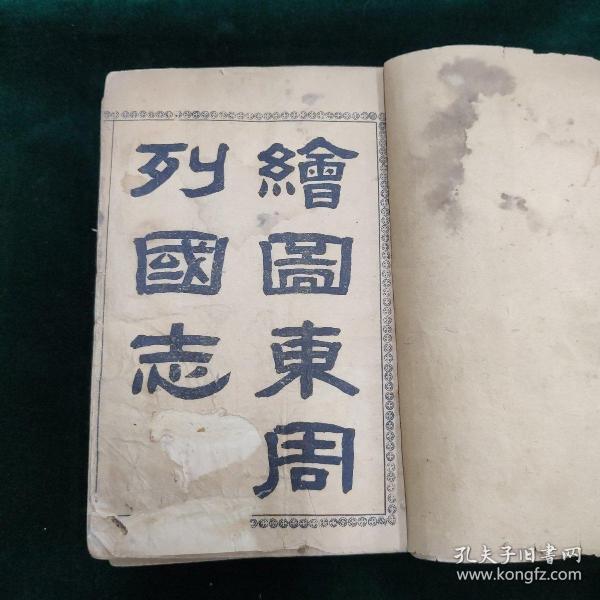 繪圖東周
列國志
孔夫子旧書网
www.kongfz.com